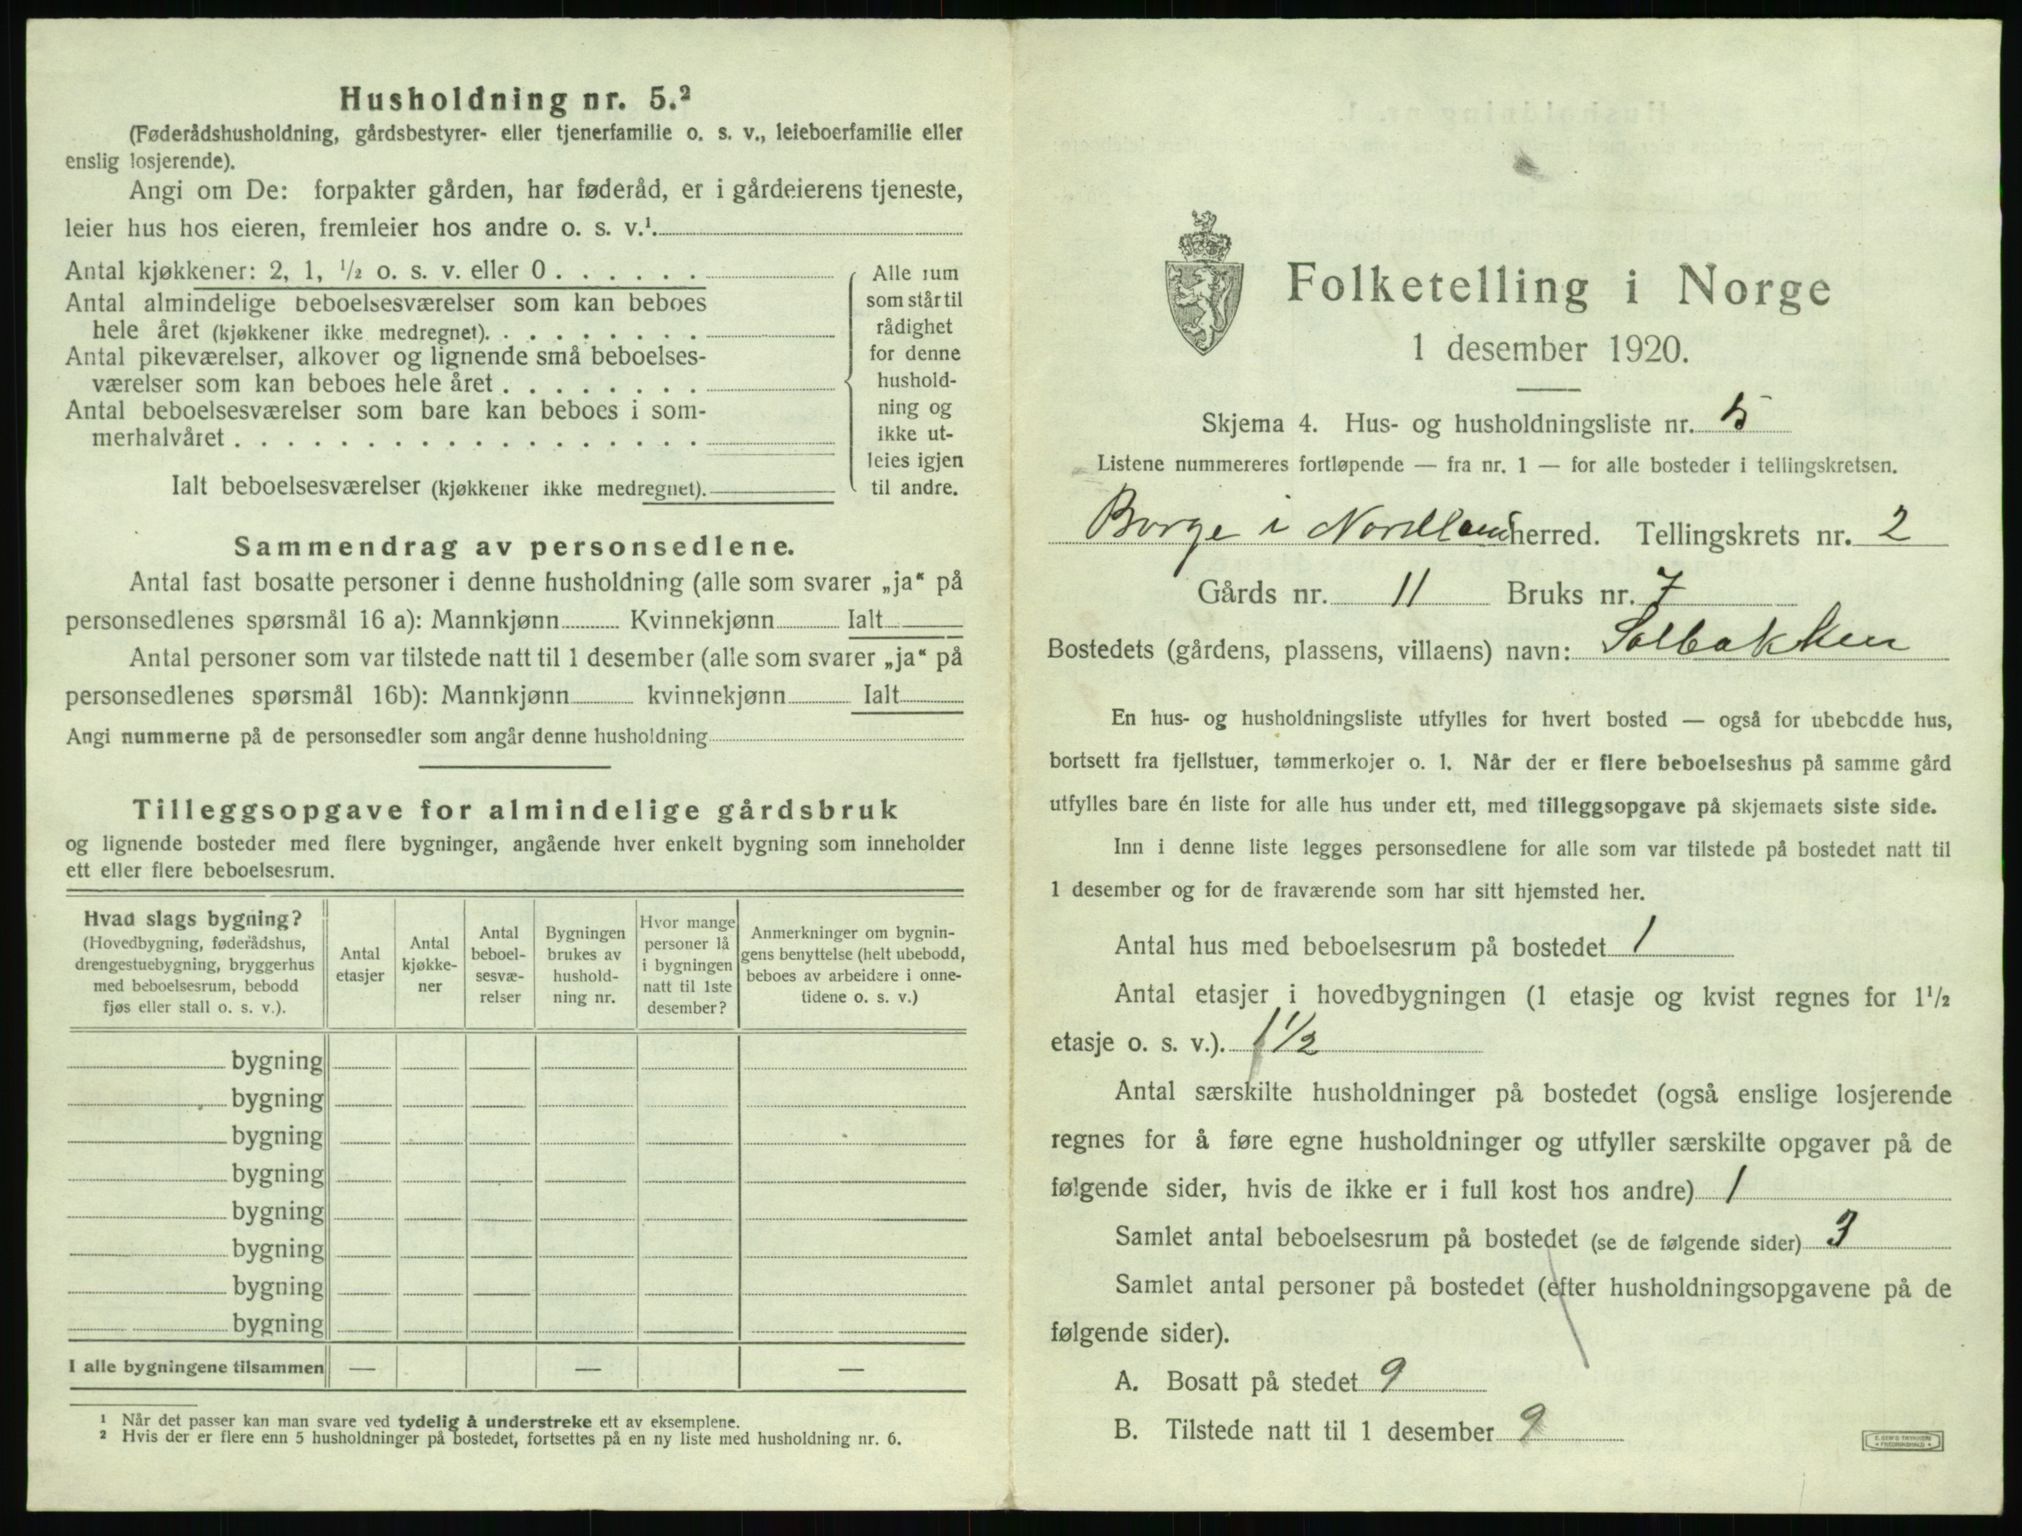 Husholdning nr. 5.²
(Føderådshusholdning, gårdsbestyrer- eller tjenerfamilie o. s. v., leieboerfamilie eller
enslig losjerende).
Angi om De: forpakter gården, har føderåd, er i gårdeierens tjeneste,
leier hus hos eieren, fremleier hos andre o. s. v.¹.
Antal kjøkkener: 2, 1, ½ o. s. v. eller 0 . . . . . .
Antal almindelige beboelsesværelser som kan beboes
hele året (kjøkkener ikke medregnet). . . . . . . . .
Antal pikeværelser, alkover og lignende små beboelses-
værelser som kan beboes hele året . . . . . . . .
Antal beboelsesværelser som bare kan beboes i som-
merhalvåret . . . . . . . . . . . . . . . . . .
Ialt beboelsesværelser (kjøkkener ikke medregnet).
Alle rum
som står til
rådighet
for denne
hushold-
ning og
ikke ut-
leies igjen
til andre.
Sammendrag av personsedlene.
Antal fast bosatte personer i denne husholdning (alle som svarer „ja“ på
personsedlenes spørsmål 16 a): Mannkjønn Kvinnekjønn Ialt
Antal personer som var tilstede natt til 1 desember (alle som svarer „ja“ på
personsedlenes spørsmål 16b): Mannkjønn kvinnekjønn Ialt
Angi nummerne på de personsedler som angår denne husholdning
Tilleggsopgave for almindelige gårdsbruk
og lignende bosteder med flere bygninger, angående hver enkelt bygning som inneholder
ett eller flere beboelsesrum.
Hvad slags bygning?
(Hovedbygning, føderådshus,
drengestuebygning, bryggerhus
med beboelsesrum, bebodd
fjøs eller stall o. s. v.).
Antal
etasjer
Antal
kjøkke-
ner
Antal
beboel-
sesvæ-
relser
Bygningen
brukes av
hushold-
ning nr.
Hvor mange
personer lå
i bygningen
natt til 1ste
desember?
Anmerkninger om bygnin-
gens benyttelse (helt ubebodd,
beboes av arbeidere i onne-
tidene o. s. v.)
bygning
bygning
bygning
bygning
bygning
bygning
bygning
bygning
I alle bygningene tilsammen — — —
¹ Når det passer kan man svare ved tydelig å understreke ett av eksemplene.
² Hvis der er flere enn 5 husholdninger på bostedet, fortsettes på en ny liste med husholdning nr. 6.
Folketelling i Norge
1 desember 1920.
Skjema 4. Hus- og husholdningsliste nr. 5
Listene nummereres fortløpende — fra nr. 1 — for alle bosteder i tellingskretsen.
Borge i Nordland herred. Tellingskrets nr. 2
Gårds nr. 11 Bruks nr. 7
Bostedets (gårdens, plassens, villaens) navn: Solbakken
En hus- og husholdningsliste utfylles for hvert bosted — også for ubebodde hus,
bortsett fra fjellstuer, tømmerkojer o. l. Når der er flere beboelseshus på samme gård
utfylles bare én liste for alle hus under ett, med tilleggsopgave på skjemaets siste side.
Inn i denne liste legges personsedlene for alle som var tilstede på bostedet natt til
1 desember og for de fraværende som har sitt hjemsted her.
Antal hus med beboelsesrum på bostedet 1
Antal etasjer i hovedbygningen (1 etasje og kvist regnes for 1½
etasje o. s. v.). 1½
Antal særskilte husholdninger på bostedet (også enslige losjerende
regnes for å føre egne husholdninger og utfyller særskilte opgaver på de
følgende sider, hvis de ikke er i full kost hos andre) 1
Samlet antal beboelsesrum på bostedet (se de følgende sider) 3
Samlet antal personer på bostedet (efter husholdningsopgavene på de
følgende sider).
A. Bosatt på stedet 9
B. Tilstede natt til 1 desember 9